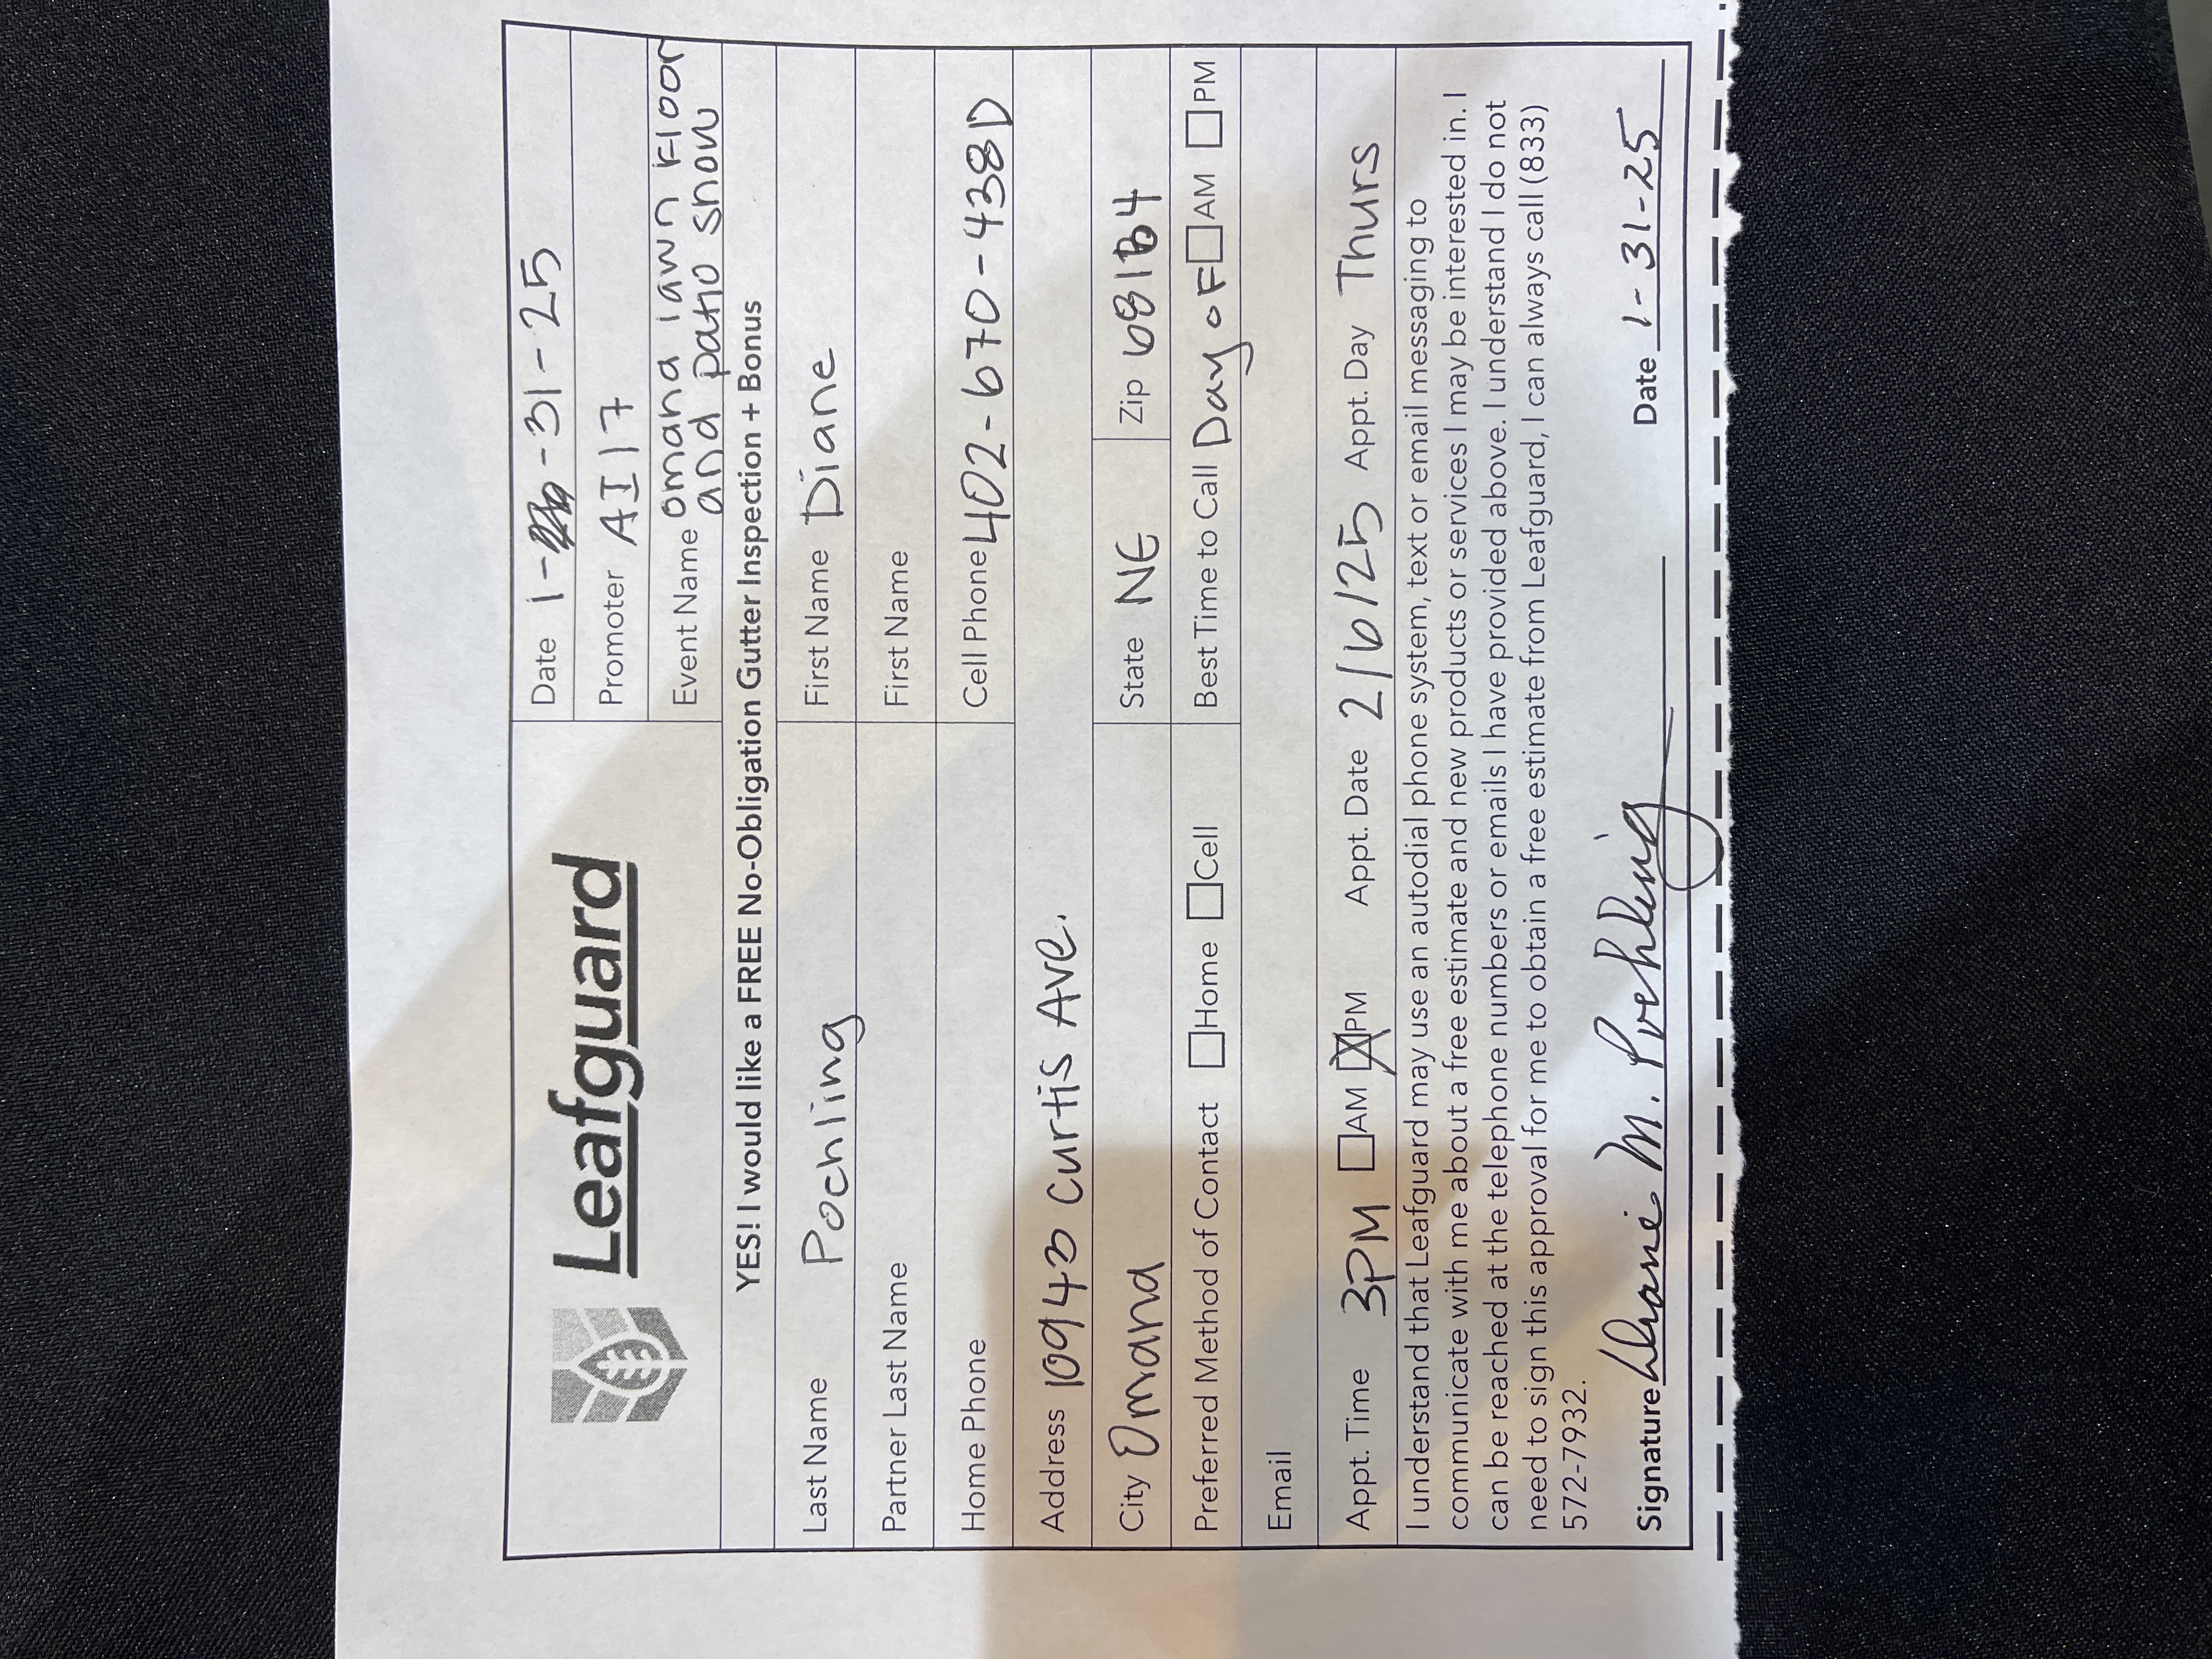 Leafguard
Date 1- -31-25
Promoter AI17
Event Name omaha lawn Floor
and patio show
YES! I would like a FREE No-Obligation Gutter Inspection + Bonus
Last Name Poehling First Name Diane
Partner Last Name First Name
Home Phone Cell Phone 402-670-4380
Address 10943 Curtis Ave.
City Omaha State NE Zip
Preferred Method of Contact Home Cell Best Time to Call Day of AM PM
Email
Appt. Time 3PM AM PM Appt. Date 2/6/25 Appt. Day Thurs
I understand that Leafguard may use an autodial phone system, text or email messaging to
communicate with me about a free estimate and new products or services I may be interested in. I
can be reached at the telephone numbers or emails I have provided above. I understand I do not
need to sign this approval for me to obtain a free estimate from Leafguard, I can always call (833)
572-7932.
Signature Diane M. Poehling Date 1-31-25